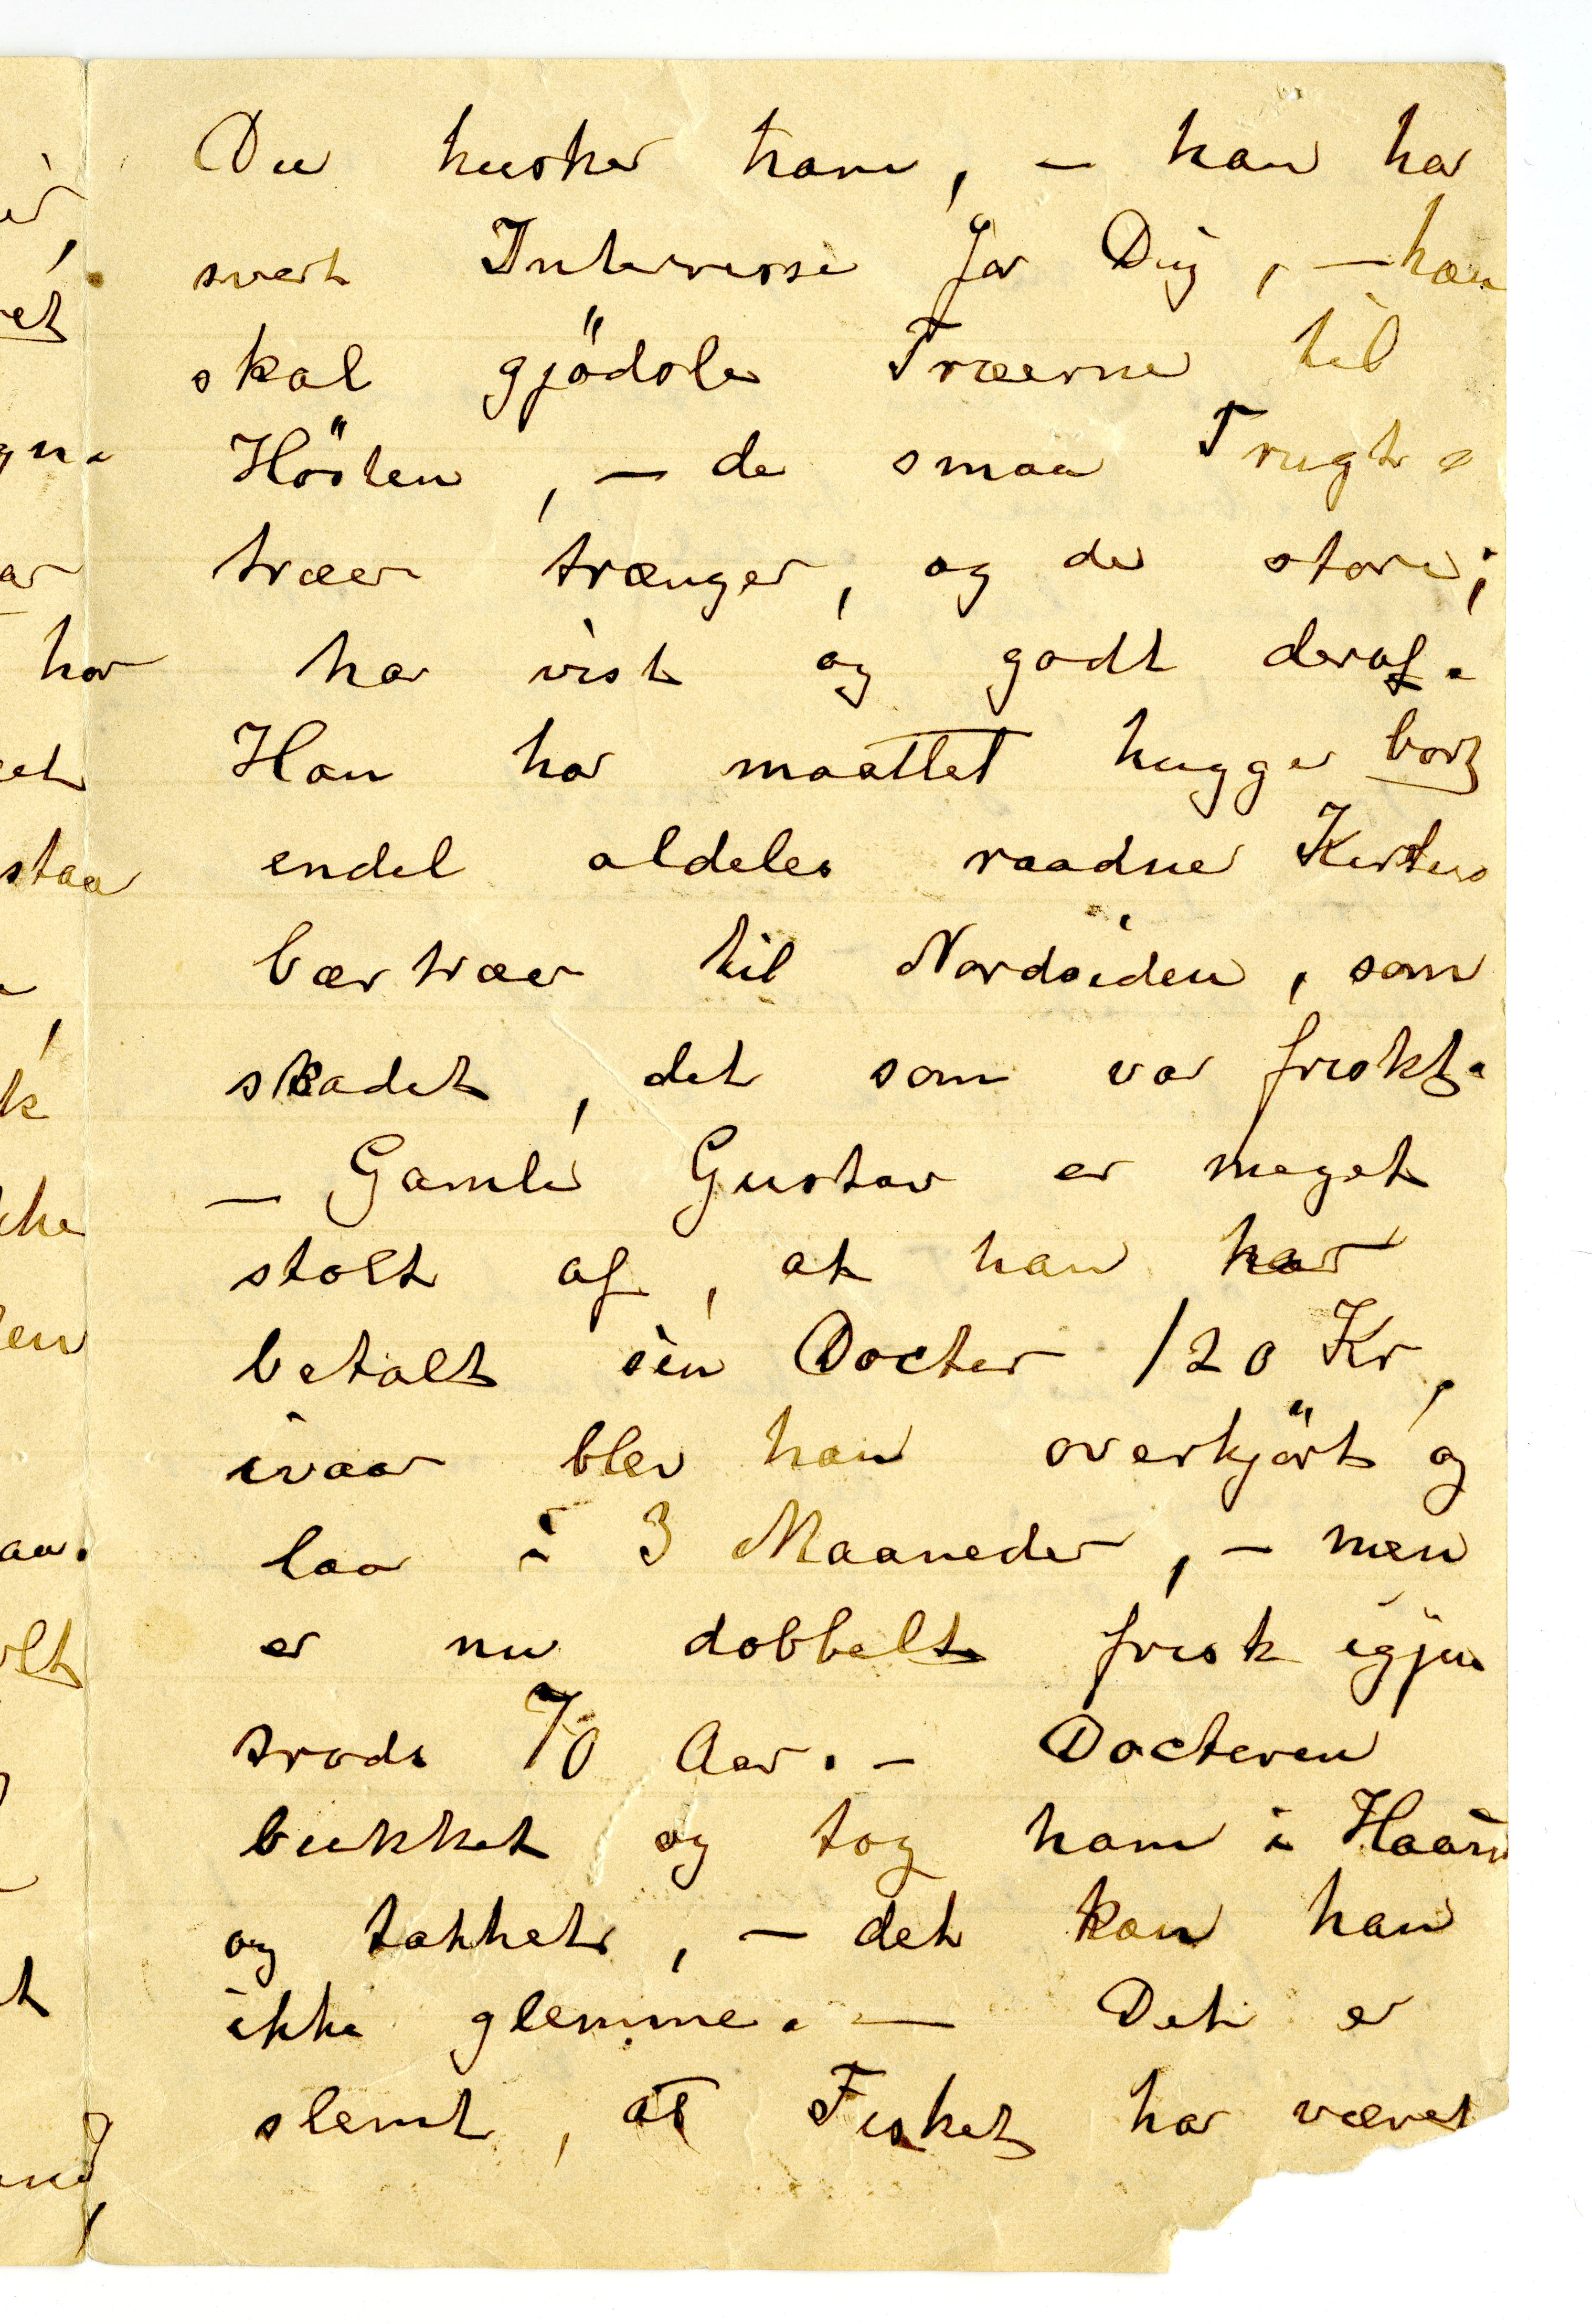 Du husker ham, – han har
svært Interresse for Dig, – han
skal gjödsle Træerne til
Hösten, – de smaa Frugt-
træer trænger, og de store;
har vist og godt deraf.
Han har maattet hugge bort
endel aldeles raadne Kirse
bærtræer til Nordsiden, som
skadet, det som var friskt.
– Gamle Gustav er meget
stolt af, at han har
betalt sin Docter 120 Kr,
ivaar blev han overkjört og
laa i 3 Maaneder, – men
er nu dobbelt frisk igjen
trods 70 Aar. – Docteren
bukket og tog ham i Haand
og takket, – det kan han
ikke glemme. – Det er
slemt, at Fisket har været